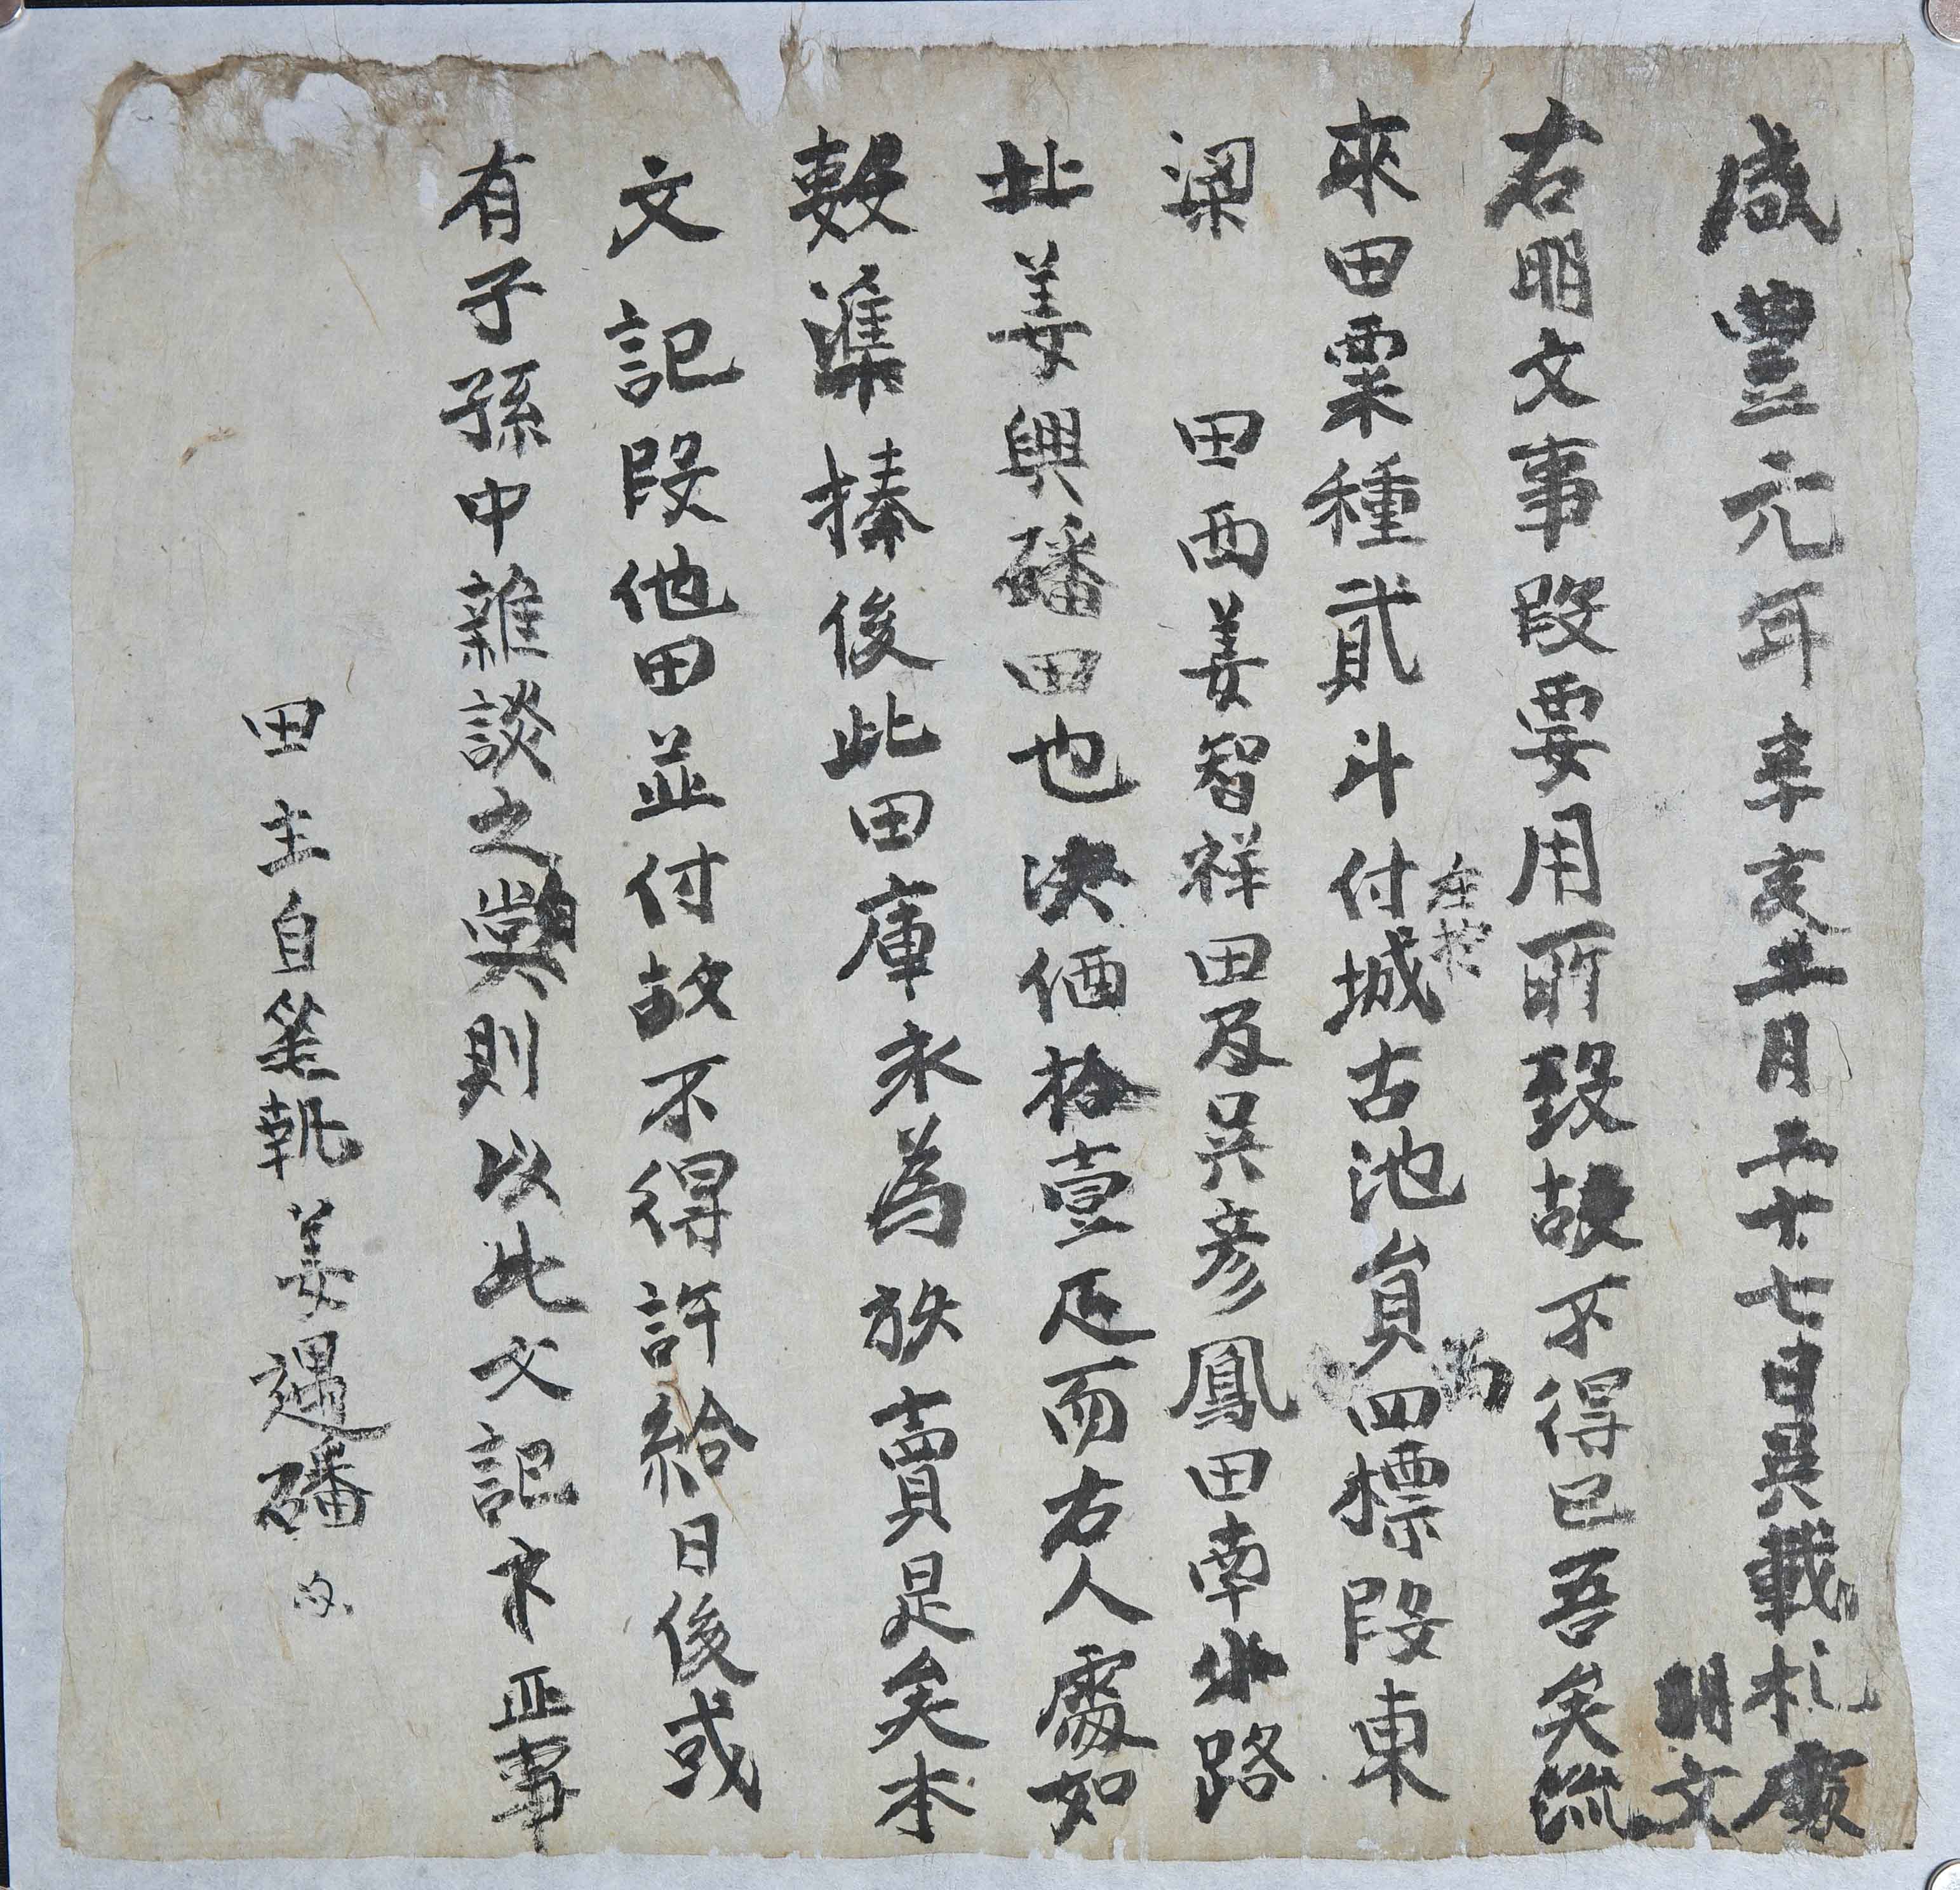 咸豊元年辛亥五月二十七日吳載札處
明文
右明文事段要用所致故不得已吾矣流
來田粟種貳斗付城古池員四標段東
在於
梁 田西姜智祥田及吳彦鳳田南 路
北姜興磻田也決価拾壹疋而右人處如
數準捧後此田庫永為放賣是矣本
文記段他田並付故不得許給日後或
有子孫中雜談之獘則以此文記卞正事
田主自筆執姜遇磻